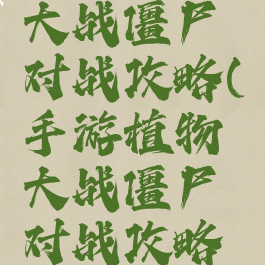 大战僵尸
对战攻略(
手游植物
大战僵尸
对战攻略